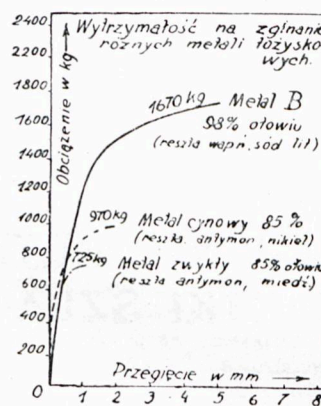 Wytrzymałość na zginanie
różnych metali łożysko-
wych.
Obciążenie w kg
2400
2200
2000
1800
1600
1400
1200
1000
800
600
400
200
0
1670 kg
Metal B
98% ołowiu
(reszta wapń, sód lit)
970 kg
Metal cynowy 85%
(reszta antymon, nikiel)
725 kg
Metal zwykły 85% ołowiu
(reszta antymon, miedź)
Przegięcie w mm
1 2 3 4 5 6 7 8